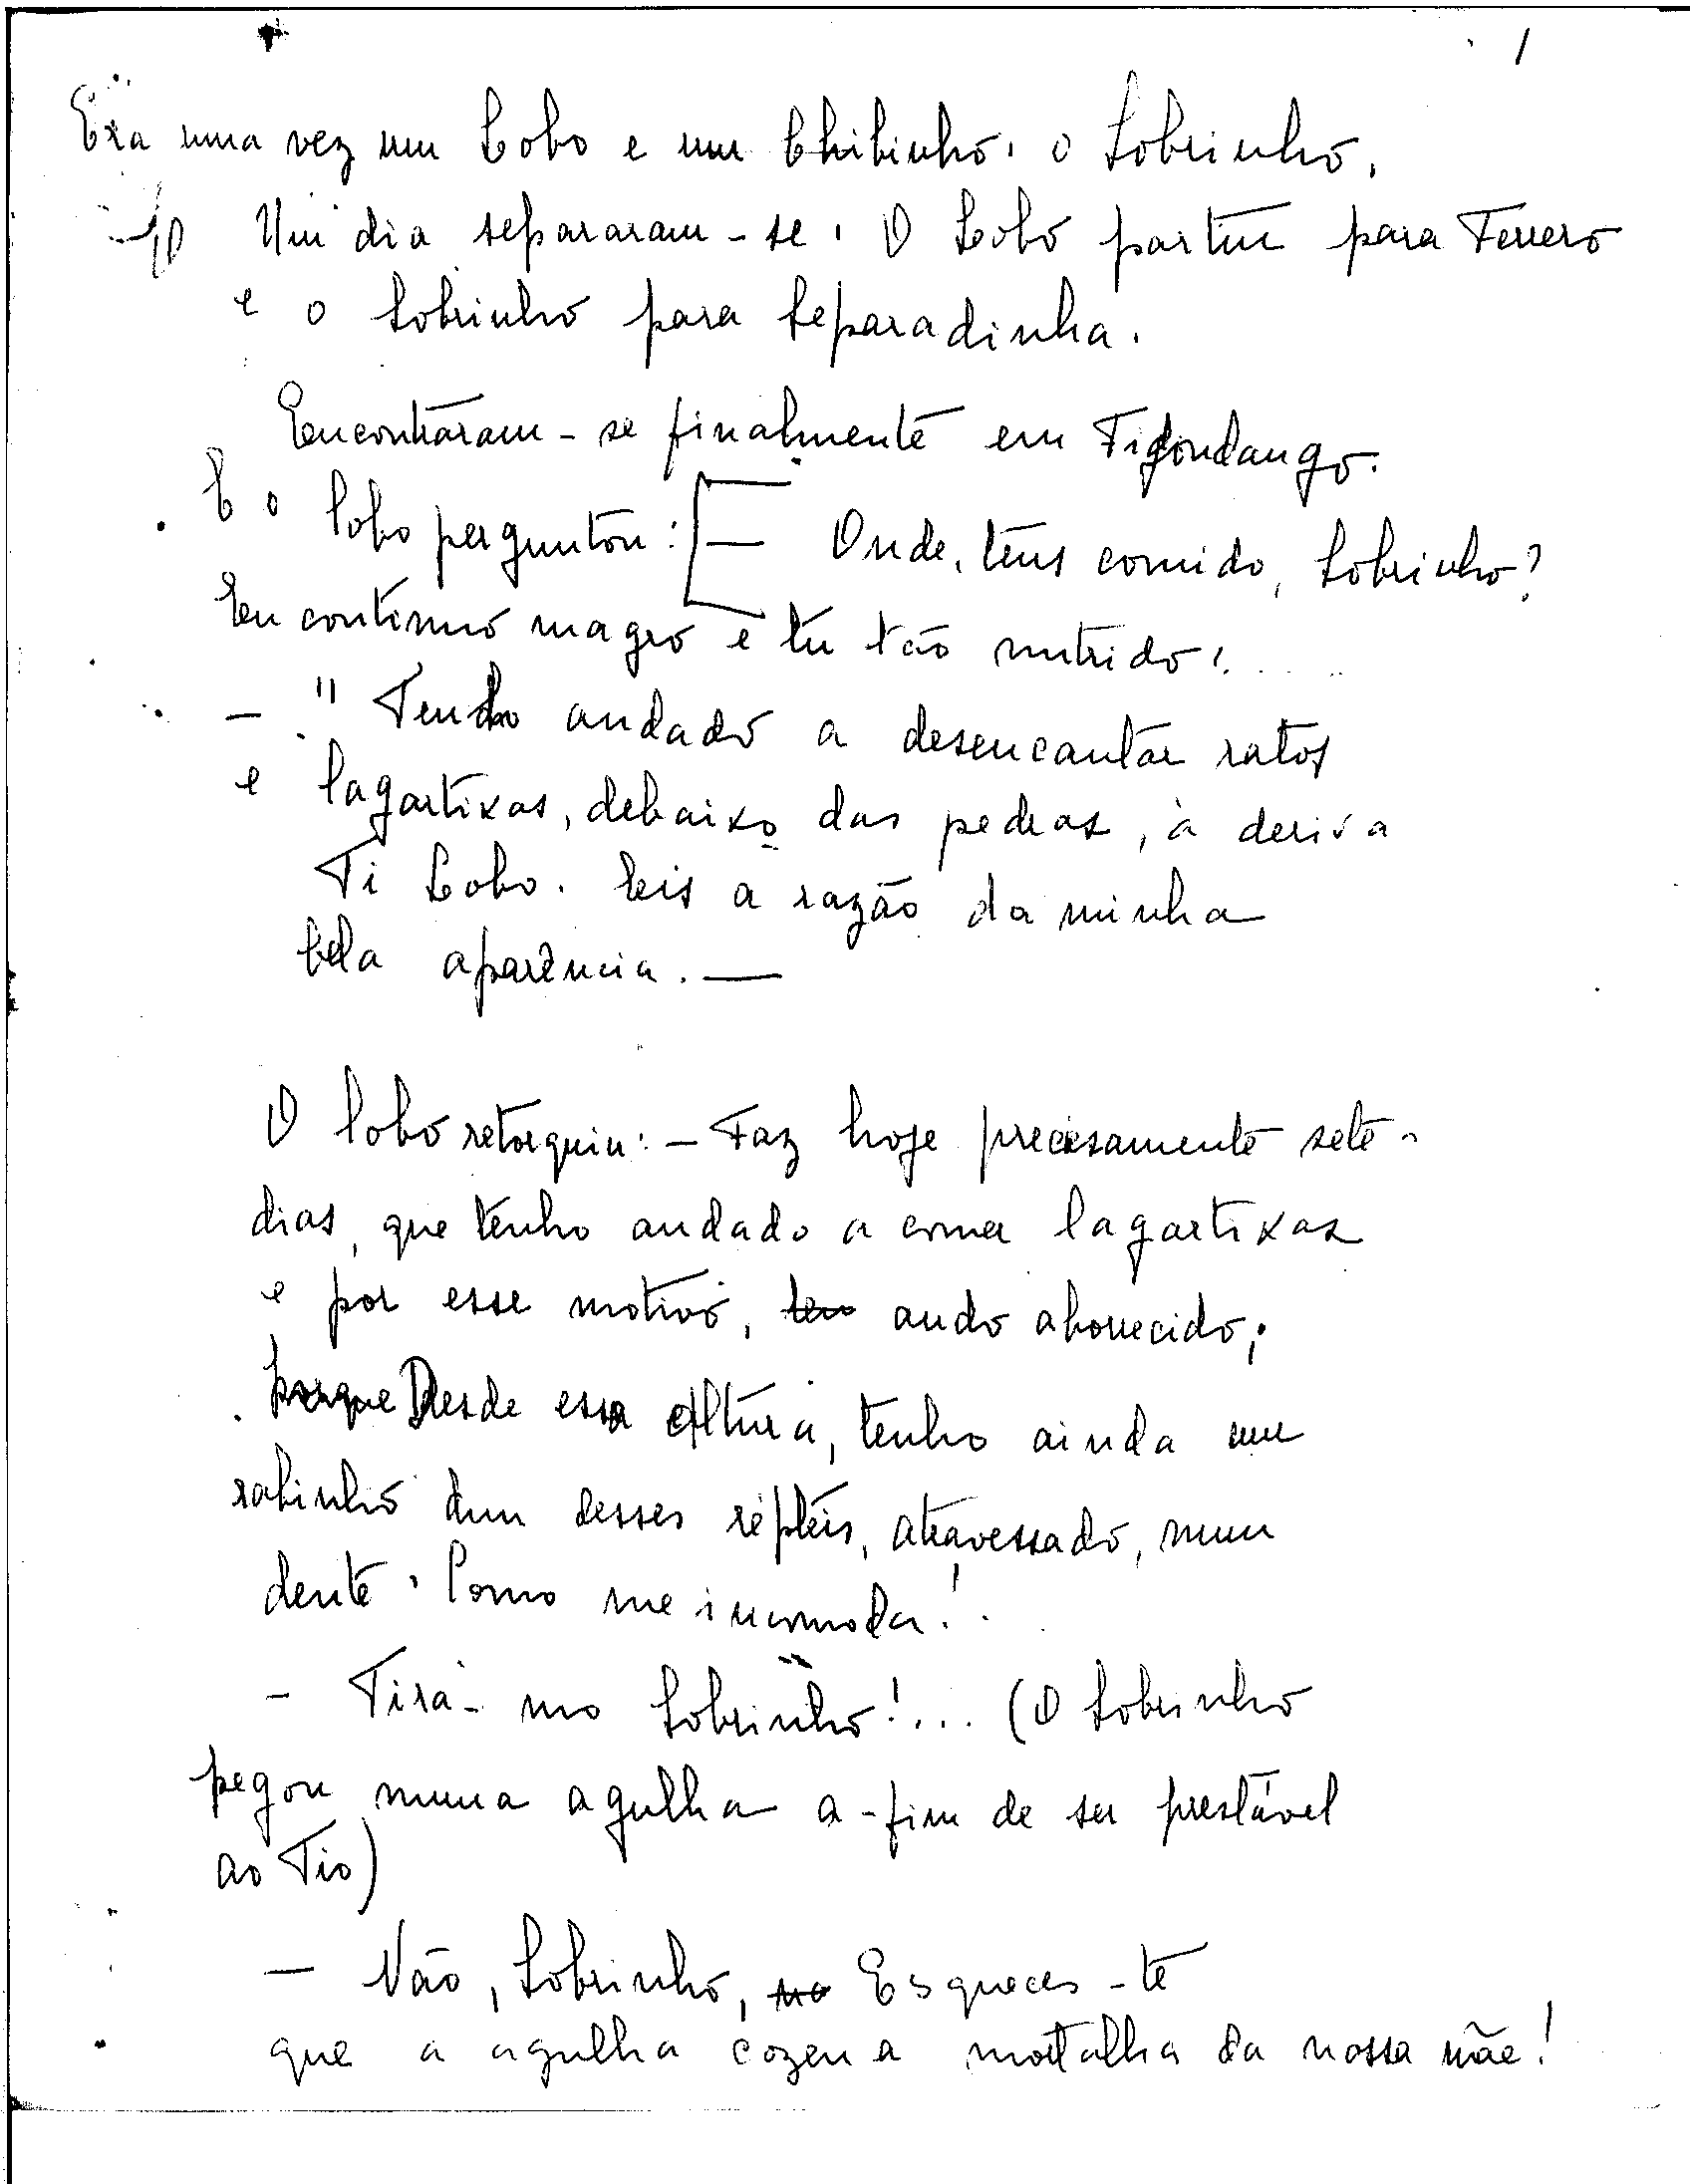 1
Era uma vez um Lobo e um Chibinho: o Sobrinho.
Um dia separaram-se. O Lobo partiu para Ferrero
e o Sobrinho para Separadinha.
Encontraram-se finalmente em Figondango.
E o lobo perguntou: [— Onde, tens comido, Sobrinho?
Eu continuo magro e tu tão nutrido!...
— "Tenho andado a desencantar ratos
e lagartixas, debaixo das pedras, à deriva
Ti Lobo. Eis a razão da minha
bela aparência. —
O lobo retorquiu: — Faz hoje precisamente sete
dias, que tenho andado a comer lagartixas
e por esse motivo, ando aborrecido;
porque Desde essa altura, tenho ainda um
rabinho dum desses répteis, atravessado, num
dente. Como me incomoda!
- Tira-mo Sobrinho!... (O Sobrinho
pegou numa agulha a-fim de ser prestável
ao Tio)
— Não, Sobrinho, Esqueces-te
que a agulha cozeu a mortalha da nossa mãe!